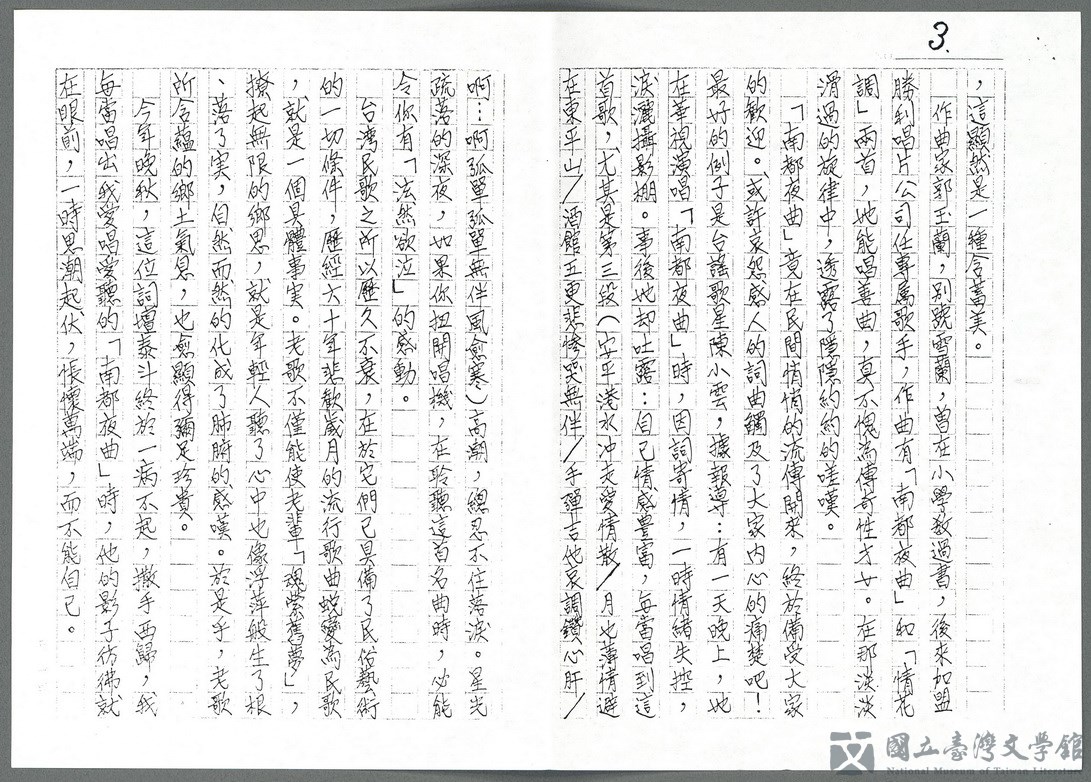 3.
，這顯然是一種含蓄美。
作曲家郭玉蘭，別號雲蘭，曾在小學教過書，後來加盟
勝利唱片公司任專屬歌手，作曲有「南都夜曲」和「情花
調」兩首，她能唱善曲，真不愧為傳奇性才女。在那淡淡
滑過的旋律中，透露了隱隱約約的嗟嘆。
「南都夜曲」竟在民間悄悄的流傳開來，終於備受大家
的歡迎。或許哀怨感人的詞曲觸及了大家內心的痛楚吧！
最好的例子是台謠歌星陳小雲，據報導：有一天晚上，她
在華視演唱「南都夜曲」時，因詞寄情，一時情緒失控，
淚灑攝影棚。事後她却吐露：自己情感豊富，每當唱到這
首歌，尤其是第三段（安平港水冲走愛情散／月也薄情避
在東平山／酒館五更悲慘哭無伴／手彈吉他哀調鑽心肝／
啊…啊孤單孤單無伴風愈寒）高潮，總忍不住落淚。星光
疏落的深夜，如果你扭開唱機，在聆聽這首名曲時，必能
令你有「泫然欲泣」的感動。
台湾民歌之所以歷久不衰，在於它們已具備了民俗藝術
的一切條件，歷經六十年悲歡歲月的流行歌曲蛻變為民歌
，就是一個具體事実。老歌不僅能使老輩「魂縈舊夢」，
撩起無限的鄉思，就是年輕人聽了心中也像浮萍般生了根
落了実，自然而然的化成了肺腑的感嘆。於是乎，老歌
所含蘊的鄉土氣息，也愈顯得彌足珍貴。
今年晚秋，這位詞壇泰斗終於一病不起，撒手西歸，我
每當唱出我愛唱愛聽的「南都夜曲」時，他的影子彷彿就
在眼前，一時思潮起伏，悵懷萬端，而不能自己。
國立臺灣文學館
National Museum of Taiwan Literature